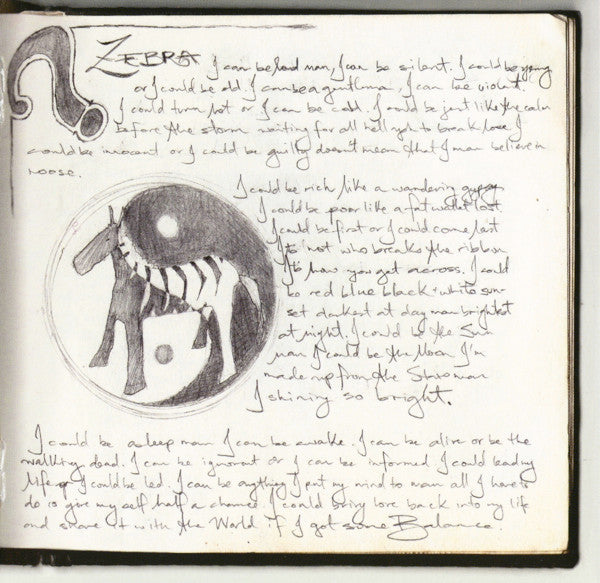 ZEBRA I can be loud man, I can be silent. I could be young
or I could be old. I can be a gentleman, I can be violent.
I could turn hot or I can be cold. I could be just like the calm
before the storm waiting for all hell yeh to break loose I
could be innocent or I could be guilty doesn't mean that I man believe in
noose.
I could be rich like a wandering gypsy
I could be poor like a fat wallet lost
I could be first or I could come last
Its not who breaks the ribbon
Its how you get across. I could
be red blue black + white sun-
set darkest at day man brightest
at night. I could be the Sun
man I could be the Moon I'm
made up from the Stars man
I shining so bright.
I could be asleep man I can be awake. I can be alive or be the
walking dead. I can be ignorant or I can be informed I could lead my
life or I could be led. I can be anything I put my mind to man all I have to
do is give my self half a chance. I could bring love back into my life
and share it with the World if I got some Balance.